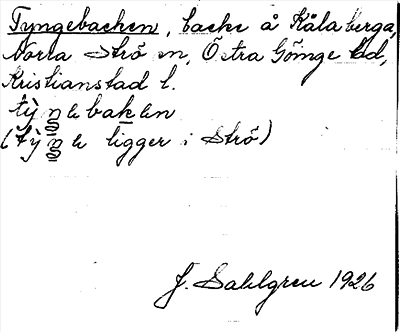 Tyngebacken, backe å Kålaberga,
Norra Strö sn, Östra Göinge hd,
Kristianstad l.
bakən
ligger i Strö)
J. Sahlgren 1926